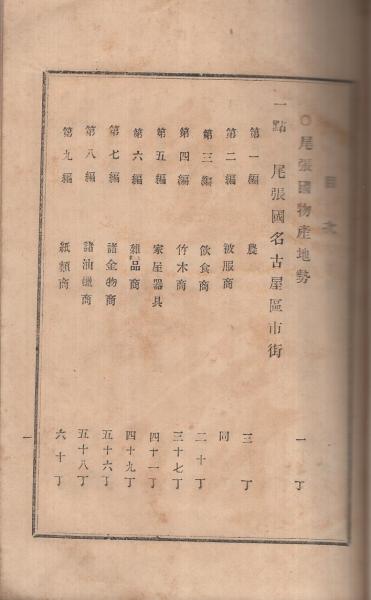 目次
〇尾張國物産地勢 一丁
一點 尾張國名古屋區市街
第一編 農 三丁
第二編 被服商 同
第三編 飲食商 二十丁
第四編 竹木商 三十七丁
第五編 家屋器具 四十一丁
第六編 雜品商 四十九丁
第七編 諸金物商 五十六丁
第八編 諸油蠟商 五十八丁
第九編 紙類商 六十丁
一